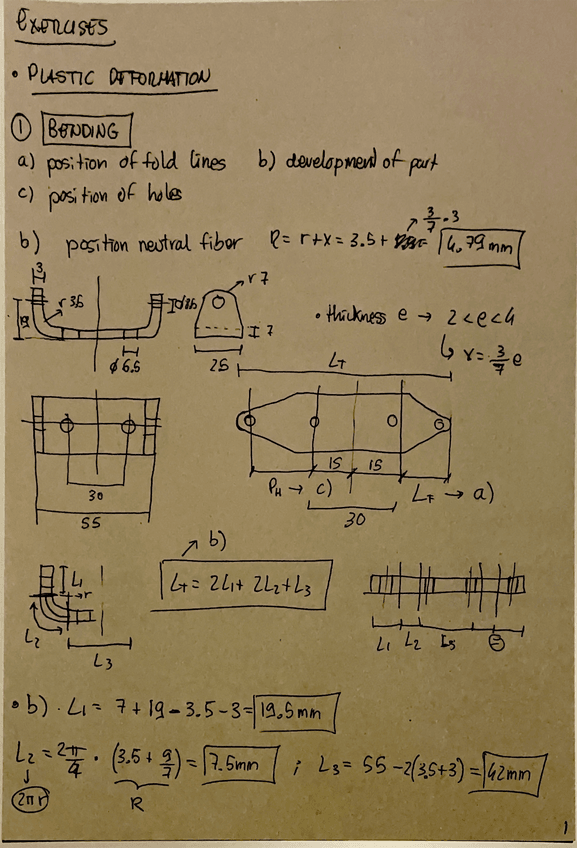 EXERCISES
• PLASTIC DEFORMATION
① BENDING
a) position of fold lines b) development of part
c) position of holes
b) position neutral fiber R = r+x = 3.5 + 3/7 · 3 = 4.79 mm
3
r 3.5
19
φ 6.5
r 7
7
25
• thickness e → 2 < e < 4
↳ x = 3/7 e
LT
30
55
15 15
PH → c)
LF → a)
30
L1
r
L2
L3
→ b)
LT = 2L1 + 2L2 + L3
L1 L2 L3
• b) · L1 = 7 + 19 - 3.5 - 3 = 19.5 mm
L2 = 2π/4 · (3.5 + 9/7) = 7.5 mm ; L3 = 55 - 2(3.5+3) = 42 mm
2πr
R
1